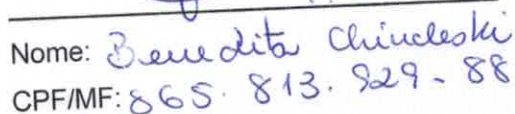 Nome: Benedita Chincleski
CPF/MF: 865. 813. 929 - 88